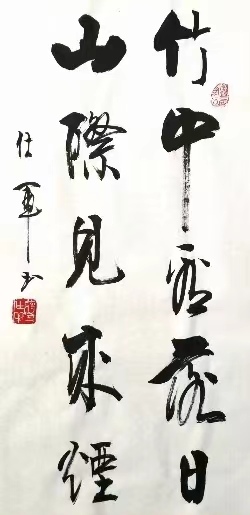 竹中窺落日
山際見來煙
仕軍书